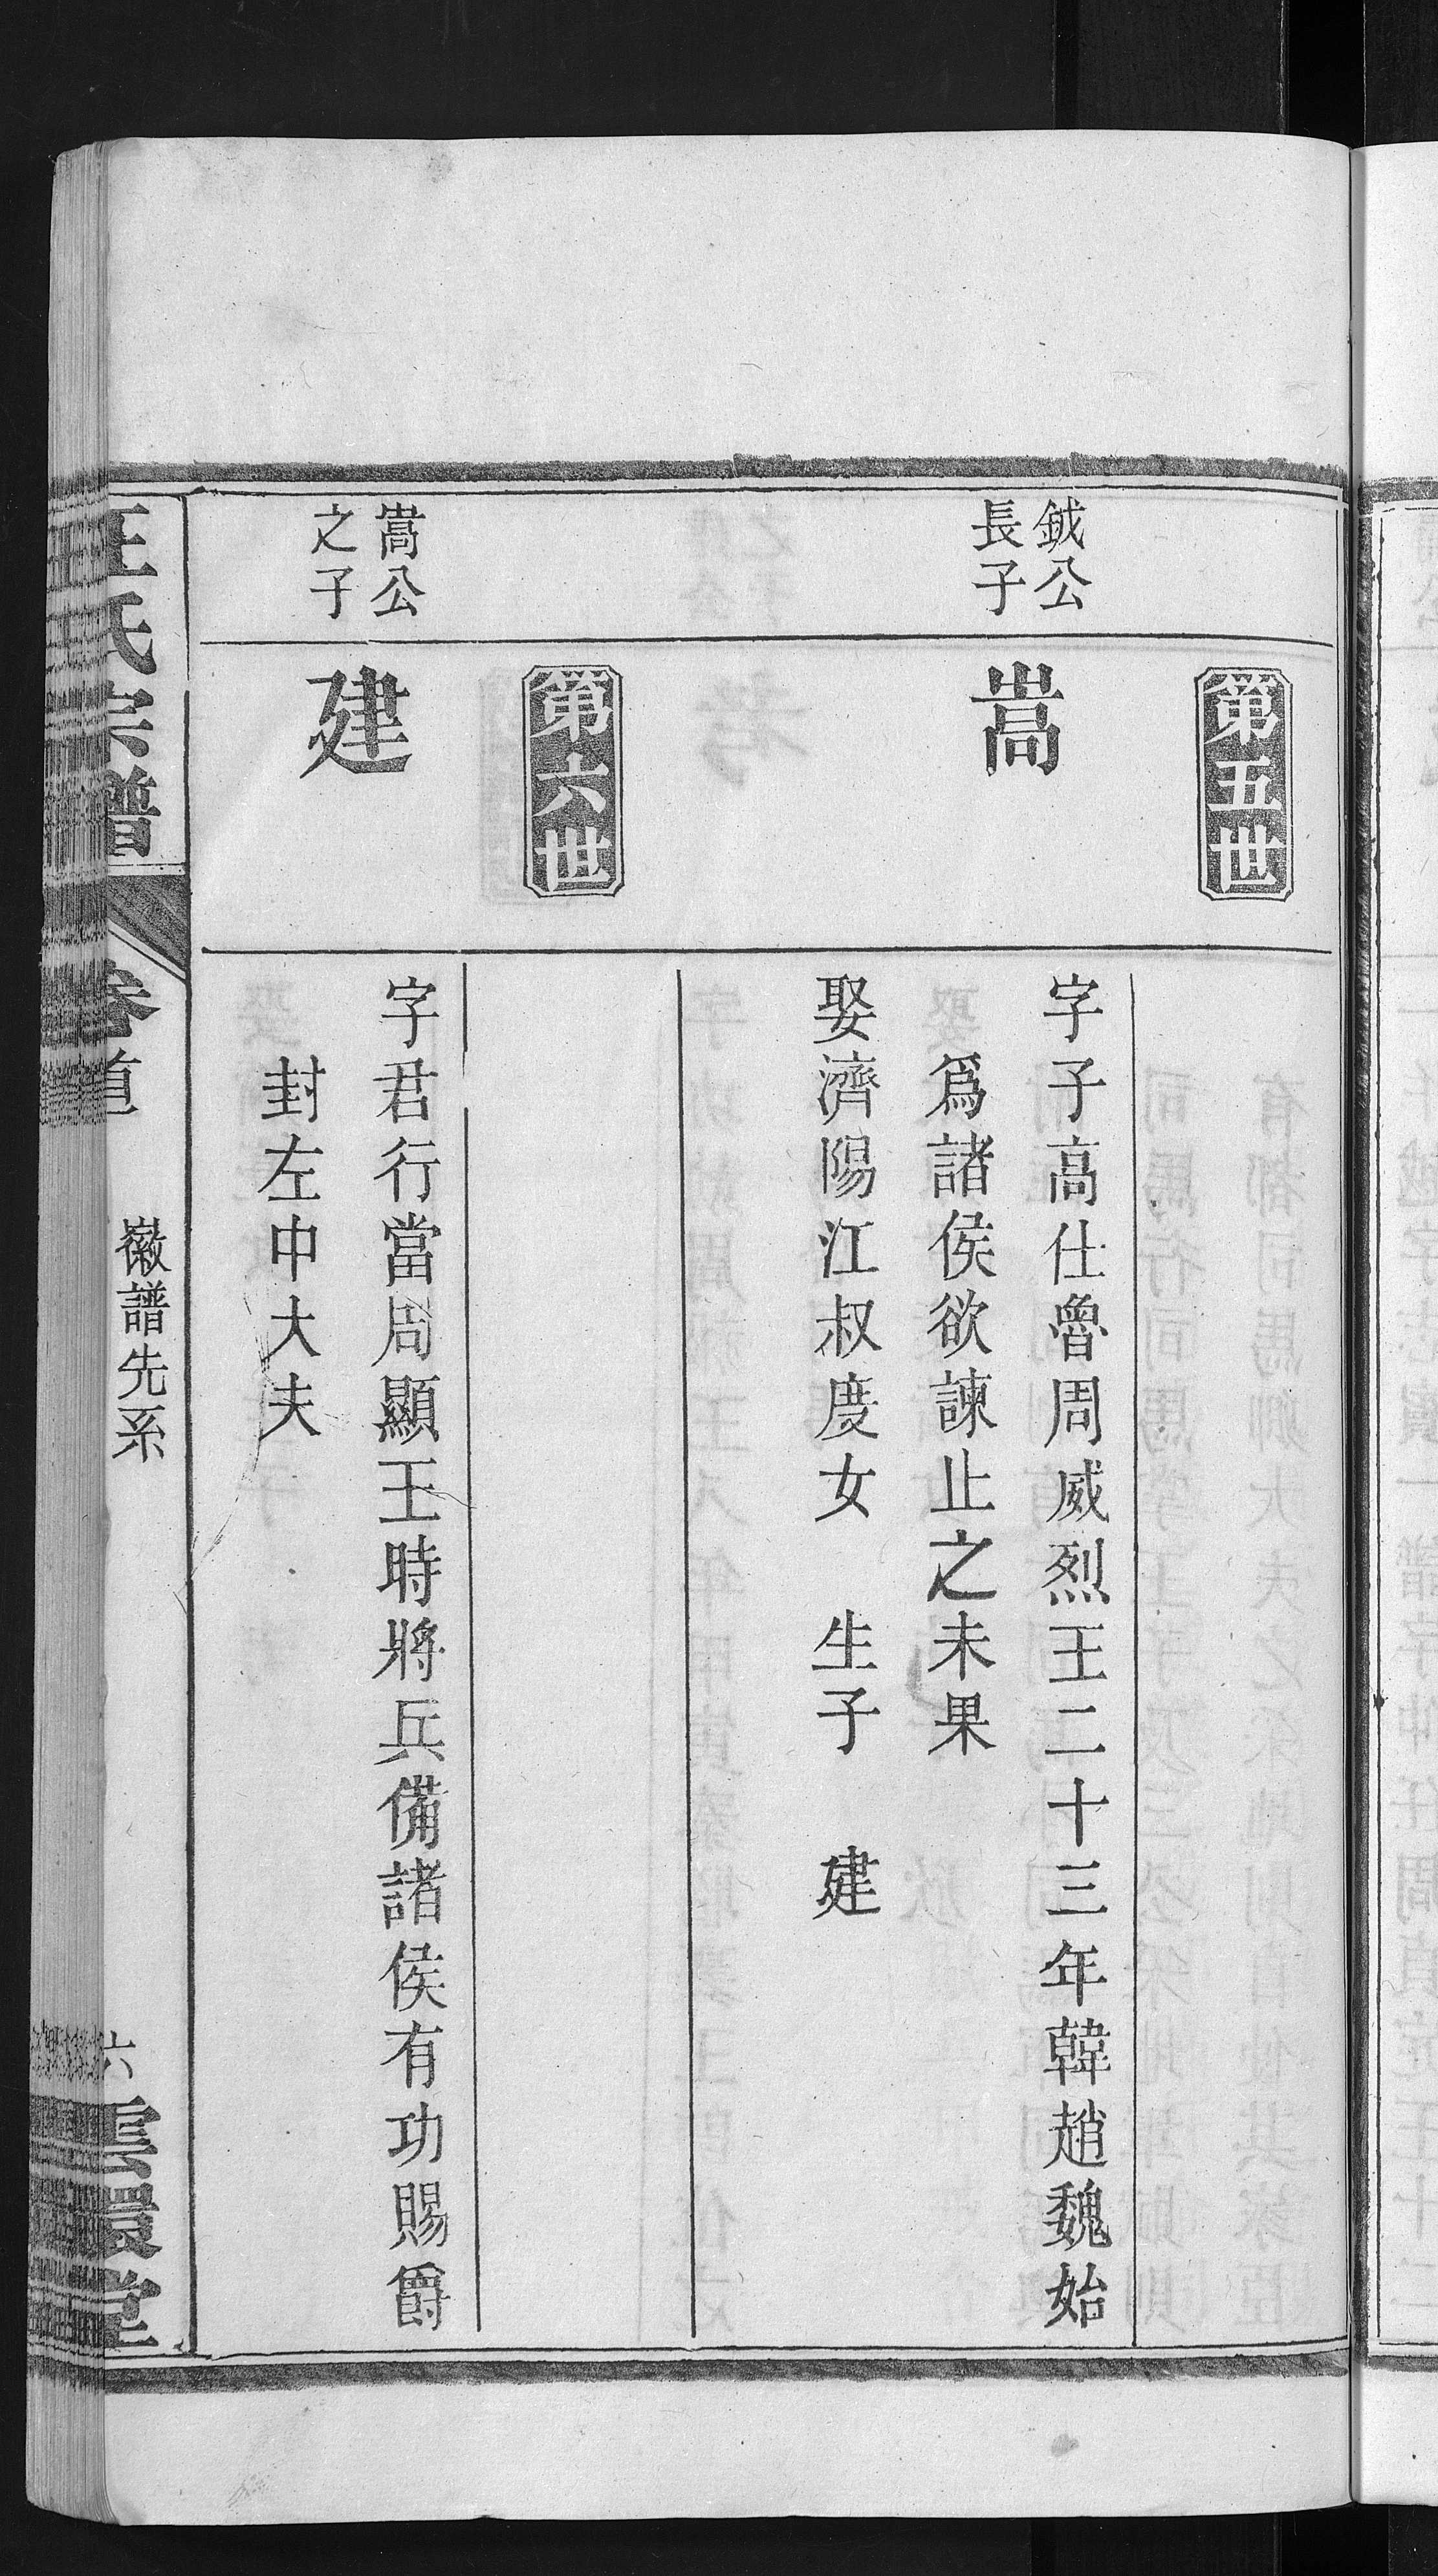 第五世
鉞公
長子
嵩
字子高仕魯周威烈王二十三年韓趙魏始
爲諸侯欲諫止之未果
娶濟陽江叔度女　生子　建
第六世
嵩公
之子
建
字君行當周顯王時將兵備諸侯有功賜爵
封左中大夫
汪氏宗譜
卷首
徽譜先系
六
雲環堂